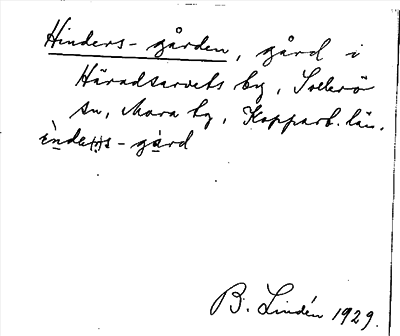 Hinders-gården, gård i
Häradsarvets by, Sollerö
sn, Mora tg, Kopparb. län.
ènde(r)s-gàrd
B. Lindén 1929.